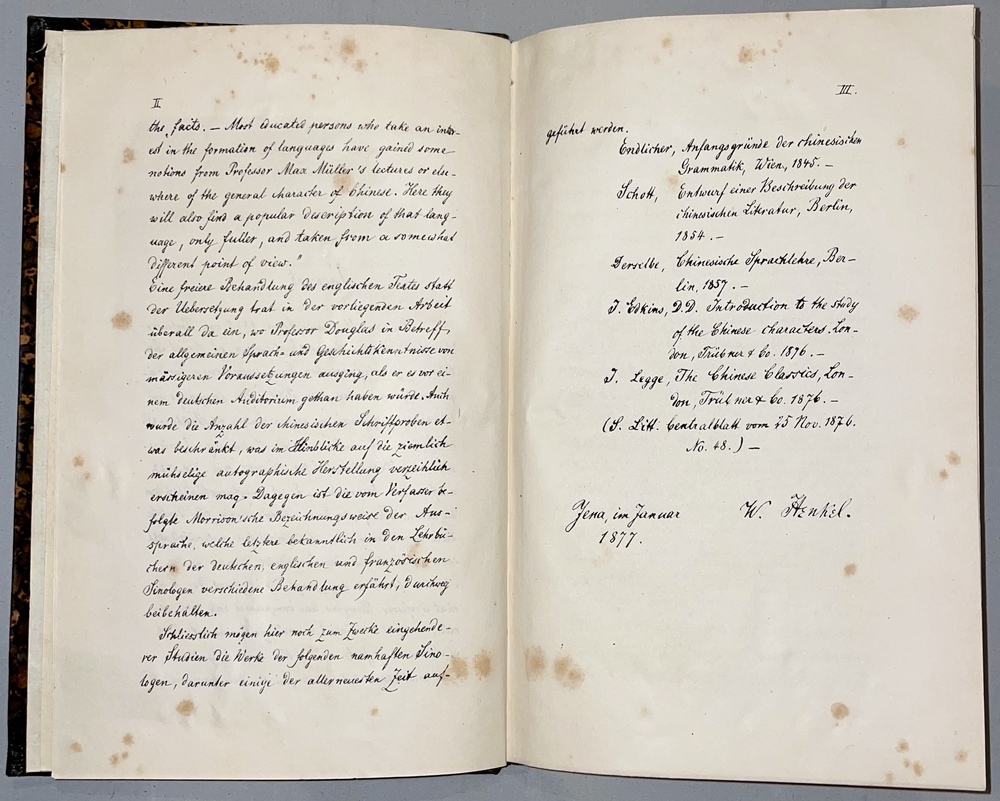 II
the facts. — Most educated persons who take an inter-
est in the formation of languages have gained some
notions from Professor Max Müller's lectures or else-
where of the general character of Chinese. Here they
will also find a popular description of that lang-
uage, only fuller, and taken from a somewhat
different point of view."
Eine freiere Behandlung des englischen Textes statt
der Uebersetzung trat in der vorliegenden Arbeit
überall da ein, wo Professor Douglas in Betreff
der allgemeinen Sprach- und Geschichtskenntnisse von
mässigeren Voraussetzungen ausging, als er es vor ei-
nem deutschen Auditorium gethan haben würde. Auch
wurde die Anzahl der chinesischen Schriftproben et-
was beschränkt, was im Hinblicke auf die ziemlich
mühselige autographische Herstellung verzeihlich
erscheinen mag. Dagegen ist die vom Verfasser be-
folgte Morrison'sche Bezeichnungsweise der Aus-
sprache, welche letztere bekanntlich in den Lehrbü-
chern der deutschen, englischen und französischen
Sinologen verschiedene Behandlung erfährt, durchweg
beibehalten.
Schliesslich mögen hier noch zum Zwecke eingehende-
rer Studien die Werke der folgenden namhaften Sino-
logen, darunter einige der allerneuesten Zeit auf-
III.
geführt werden.
Endlicher, Anfangsgründe der chinesischen
Grammatik, Wien, 1845. —
Schott, Entwurf einer Beschreibung der
chinesischen Literatur, Berlin,
1854. —
Derselbe, Chinesische Sprachlehre, Ber-
lin, 1857. —
J. Edkins, D.D. Introduction to the study
of the Chinese characters. Lon-
don, Trübner & Co. 1876. —
J. Legge, The Chinese Classics, Lon-
don, Trübner & Co. 1876. —
(S. Litt. Centralblatt vom 25 Nov. 1876.
No. 48.) —
Jena, im Januar W. Henkel.
1877.